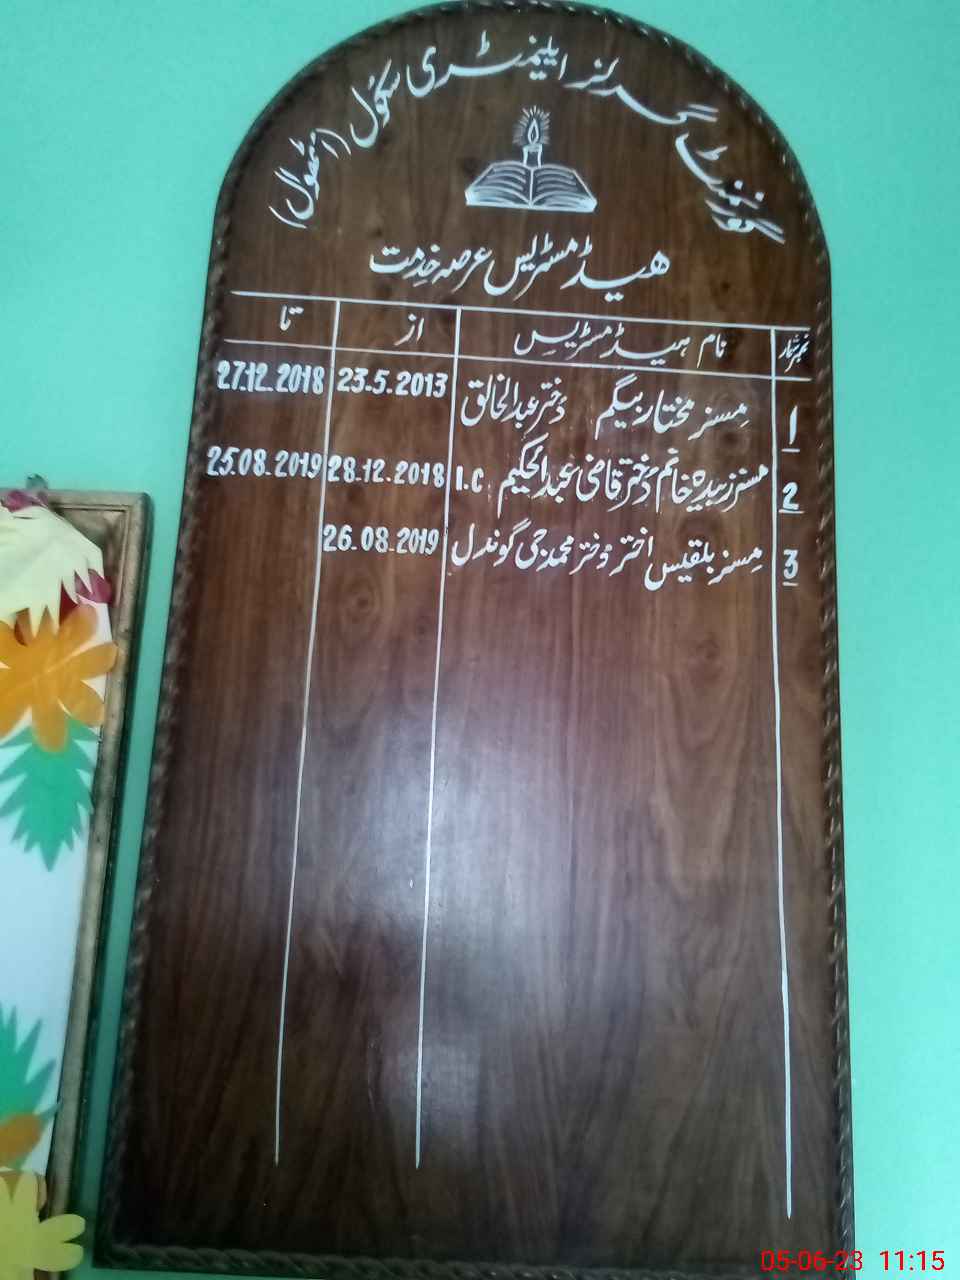 گورنمنٹ گرلز ایلیمنٹری سکول (اٹھوال)
ھیڈ مسٹریس عرصہ خدمت
نمبر شمار نام ہیڈ مسٹریس از تا
1 مسز مختار بیگم دُختر عبدالخالق 23.5.2013 27.12.2018
2 مسنر زبیدہ خانم دُختر قاضی عبدالحکیم I.C 28.12.2018 25.08.2019
3 مسز بلقیس اختر دختر محمد جی گوندل 26.08.2019
05-06-23 11:15